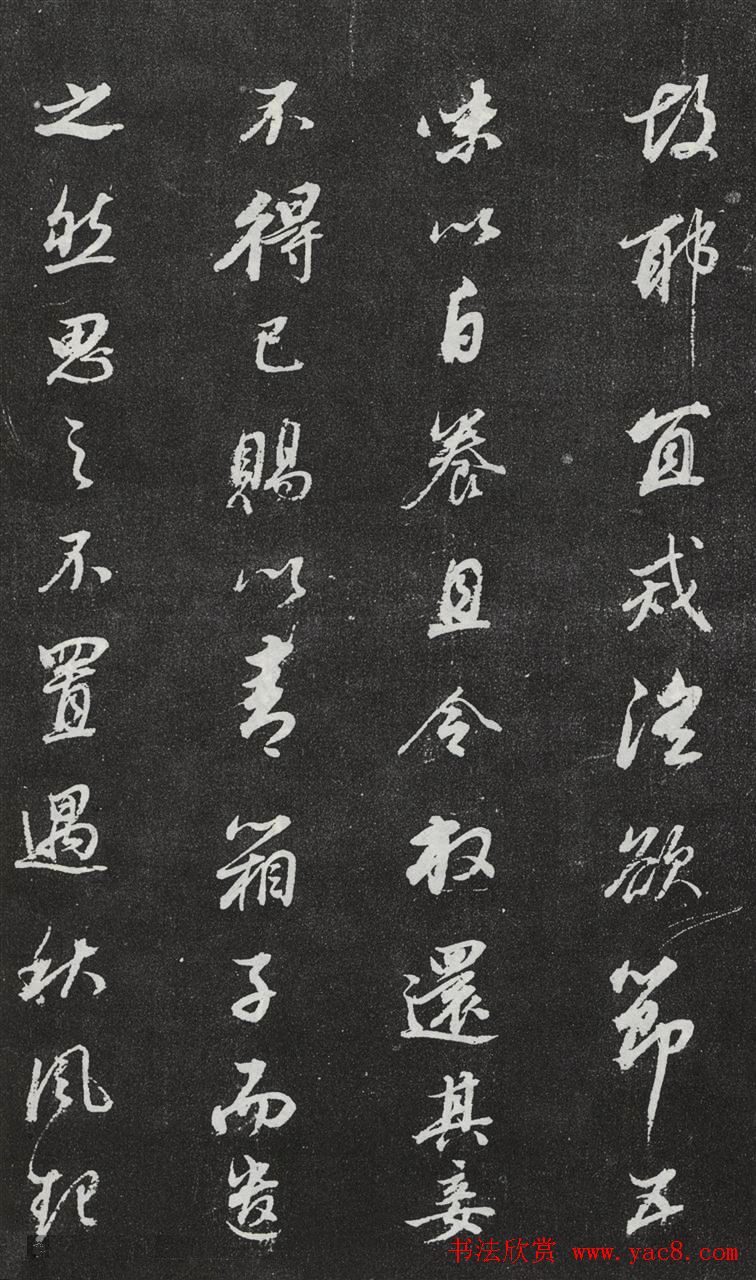 故耶宜戒淫欲節五
味以自養且令放還其妾
不得已賜以青箱子而遣
之然思之不置遇秋風起
书法欣赏 www.yac8.com